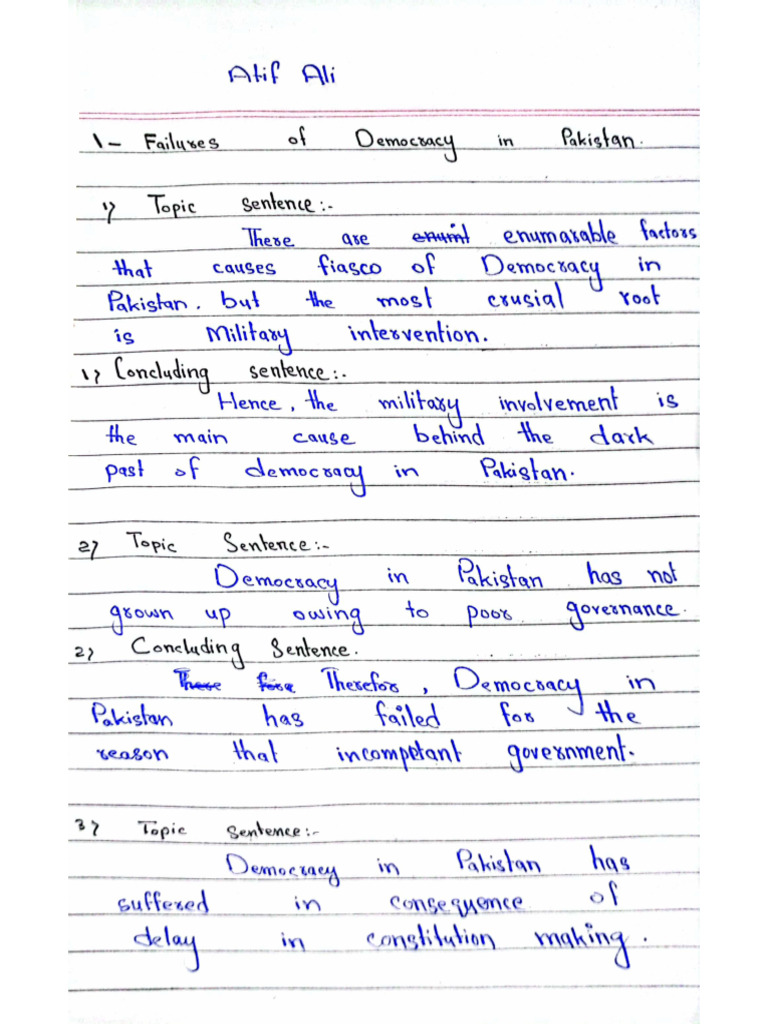 Atif Ali
1- Failures of Democracy in Pakistan.
1) Topic Sentence:-
There are enumarable factors
that causes fiasco of Democracy in
Pakistan. but the most crusial root
is Military intervention.
1) Concluding sentence:-
Hence, the military involvement is
the main cause behind the dark
past of democracy in Pakistan.
2) Topic Sentence:-
Democracy in Pakistan has not
grown up owing to poor governance.
2) Concluding Sentence.
Therefor, Democracy in
Pakistan has failed for the
reason that incompetant government.
3) Topic Sentence:-
Democracy in Pakistan has
suffered in consequence of
delay in constitution making.